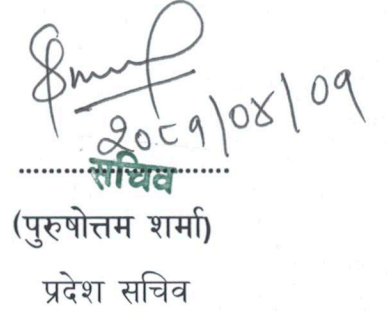 २०८१/०४/०१
सचिव
(पुरुषोत्तम शर्मा)
प्रदेश सचिव